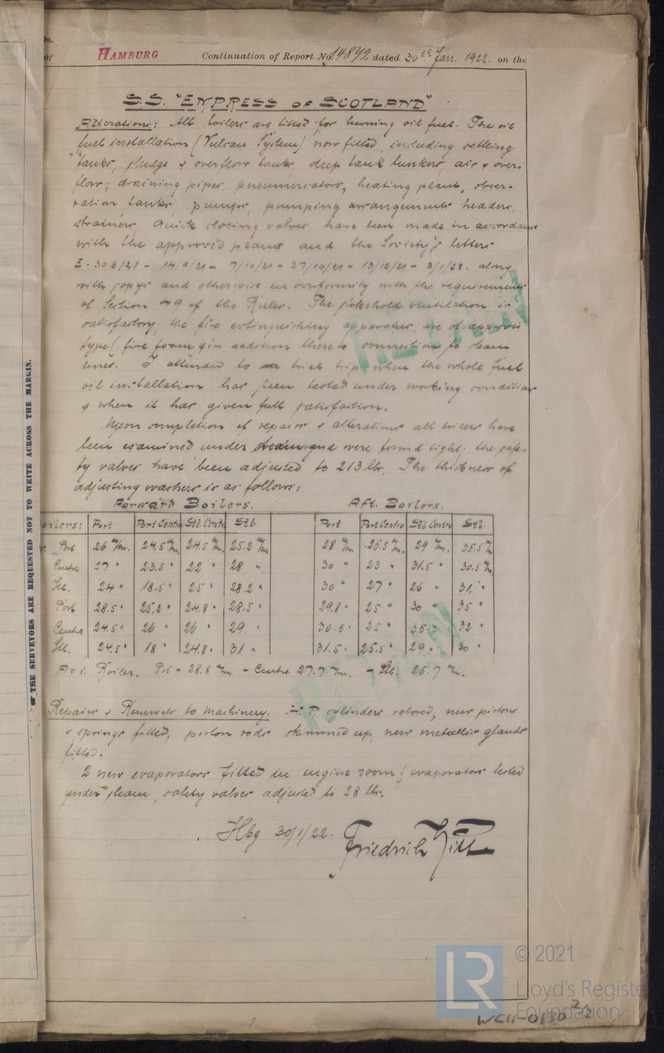 HAMBURG Continuation of Report No. 14892 dated 30th Jan. 1922. on the
S.S. "EMPRESS OF SCOTLAND"
Alterations: All boilers are fitted for burning oil fuel. The oil
fuel installation (Vulcan System) now fitted, including settling
tanks, sludge & overflow tanks, deep tank bunkers, air & over-
flow, draining pipes, heating plant, obser-
vation tanks, pumps, pumping arrangements headers,
strainers Quick closing valves have been made in accordance
with the approved plans and the Society's letters
E. 30/6/21 - 14/9/21 - 7/10/21 - 27/10/21 - 13/12/21 - 3/1/22. along
with copys and otherwise in conformity with the requirements
of Section 49 of the Rules. The stokehold ventilation is
satisfactory, the fire extinguishing apparatus are of approved
type (fire foam) in addition thereto connection to steam
lines. I attended to a trial trip when the whole fuel
oil installation has been tested under working conditions
& when it has given full satisfaction.
Upon completion of repairs & alterations all boilers have
been examined under steam and were found tight. the safe-
ty valves have been adjusted to 213 lbs. The thickness of
adjusting washers is as follows:
Forward Boilers. Aft. Boilers.
oilers: Port Port Centre Stb. Centre Stb. Port Port Centre Stb Centre Stb.
Port 26 m/m. 24.5 m/m 24.5 m/m 25.2 m/m 28 m/m 25.5 m/m 29 m/m. 35.5 m/m
Centre 27 " 23.5 " 22 " 28 " 30 " 23 " 31.5 " 30.5 m/m.
Stb. 24 " 18.5 " 25 " 28.2 " 30 " 27 " 26 " 31. "
Port 28.5 " 25.2 " 24.8 " 28.5 " 29.8 " 25 " 30 " 35 "
Centre 24.5 " 26 " 26 " 29. " 30.5 " 25 " 35.5 " 32 "
Stb. 24.5 " 18 " 24.8 " 31 " 31.5 " 25.5 " 29 " 30 "
Aux. Boiler. Port - 28.6 m/m - Centre 27.7 m/m. - Stb. 25.7 m/m.
Repairs & Renewals to Machinery. H.P. cylinders rebored, new pistons
& springs fitted, piston rods skimmed up, new metallic glands
fitted.
2 new evaporators fitted in engine room, evaporators tested
under steam, safety valves adjusted to 28 lbs.
Hbg 30/1/22. Friedrich
THE SURVEYORS ARE REQUESTED NOT TO WRITE ACROSS THE MARGIN.
LR
© 2021
Lloyd's Register
Foundation
W611-0130 2/2